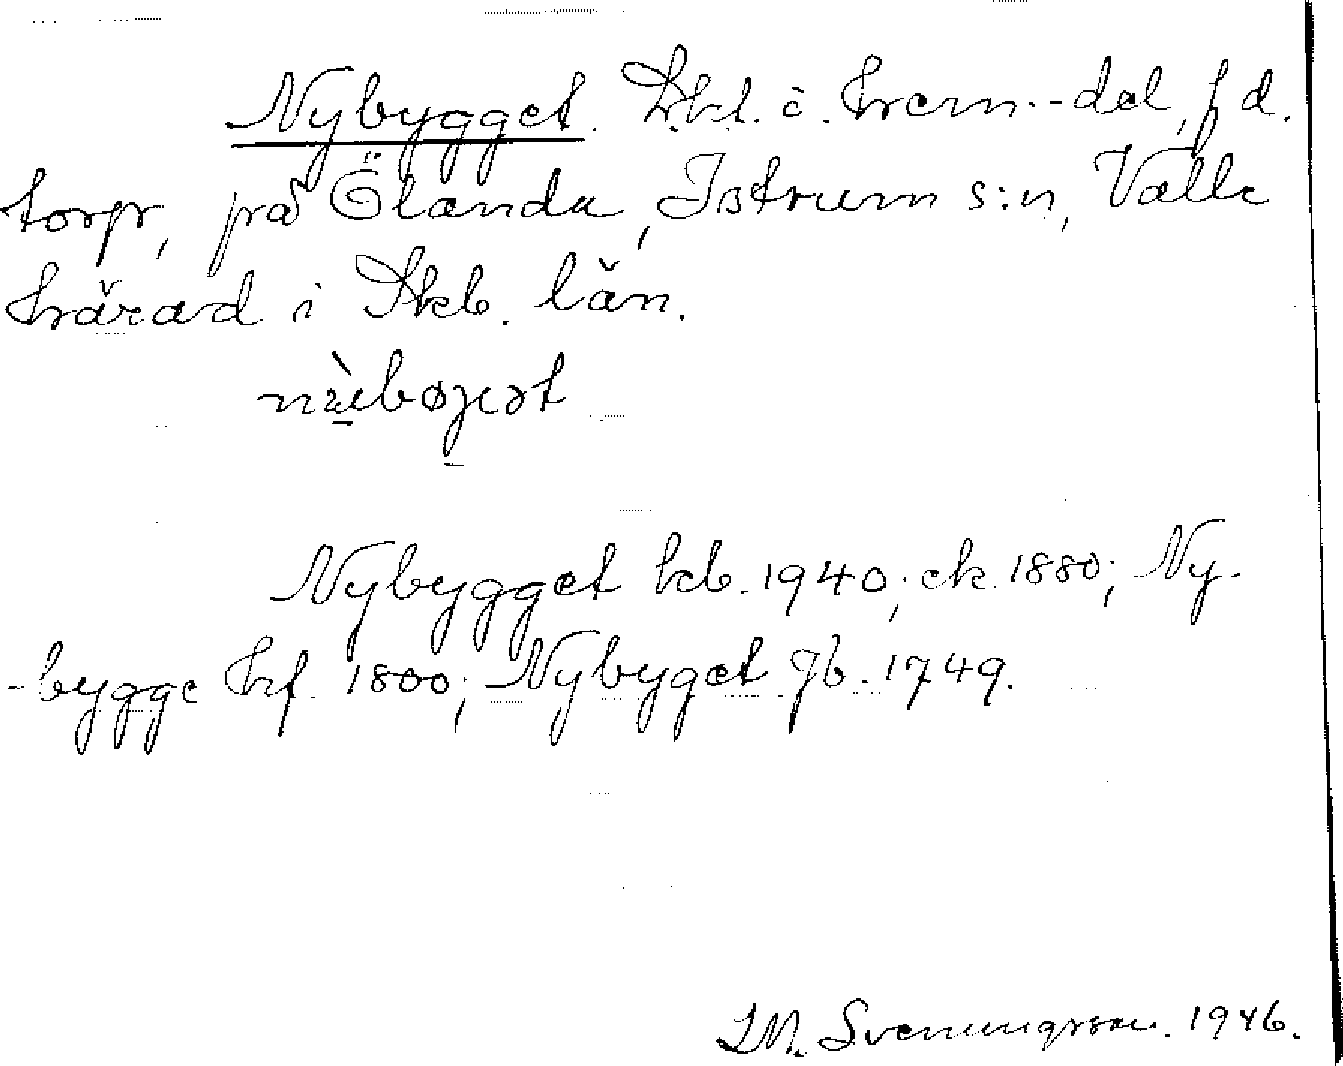 Nybygget. Lht. i hem.-del, f d.
torp, på Ölanda, Istrum s:n, Valle
härad i Skb. län.
Nybygget kb. 1940; ek. 1880; Ny-
-bygge hf. 1800; Nybyget Jb. 1749.
I.M. Svenungsson. 1946.